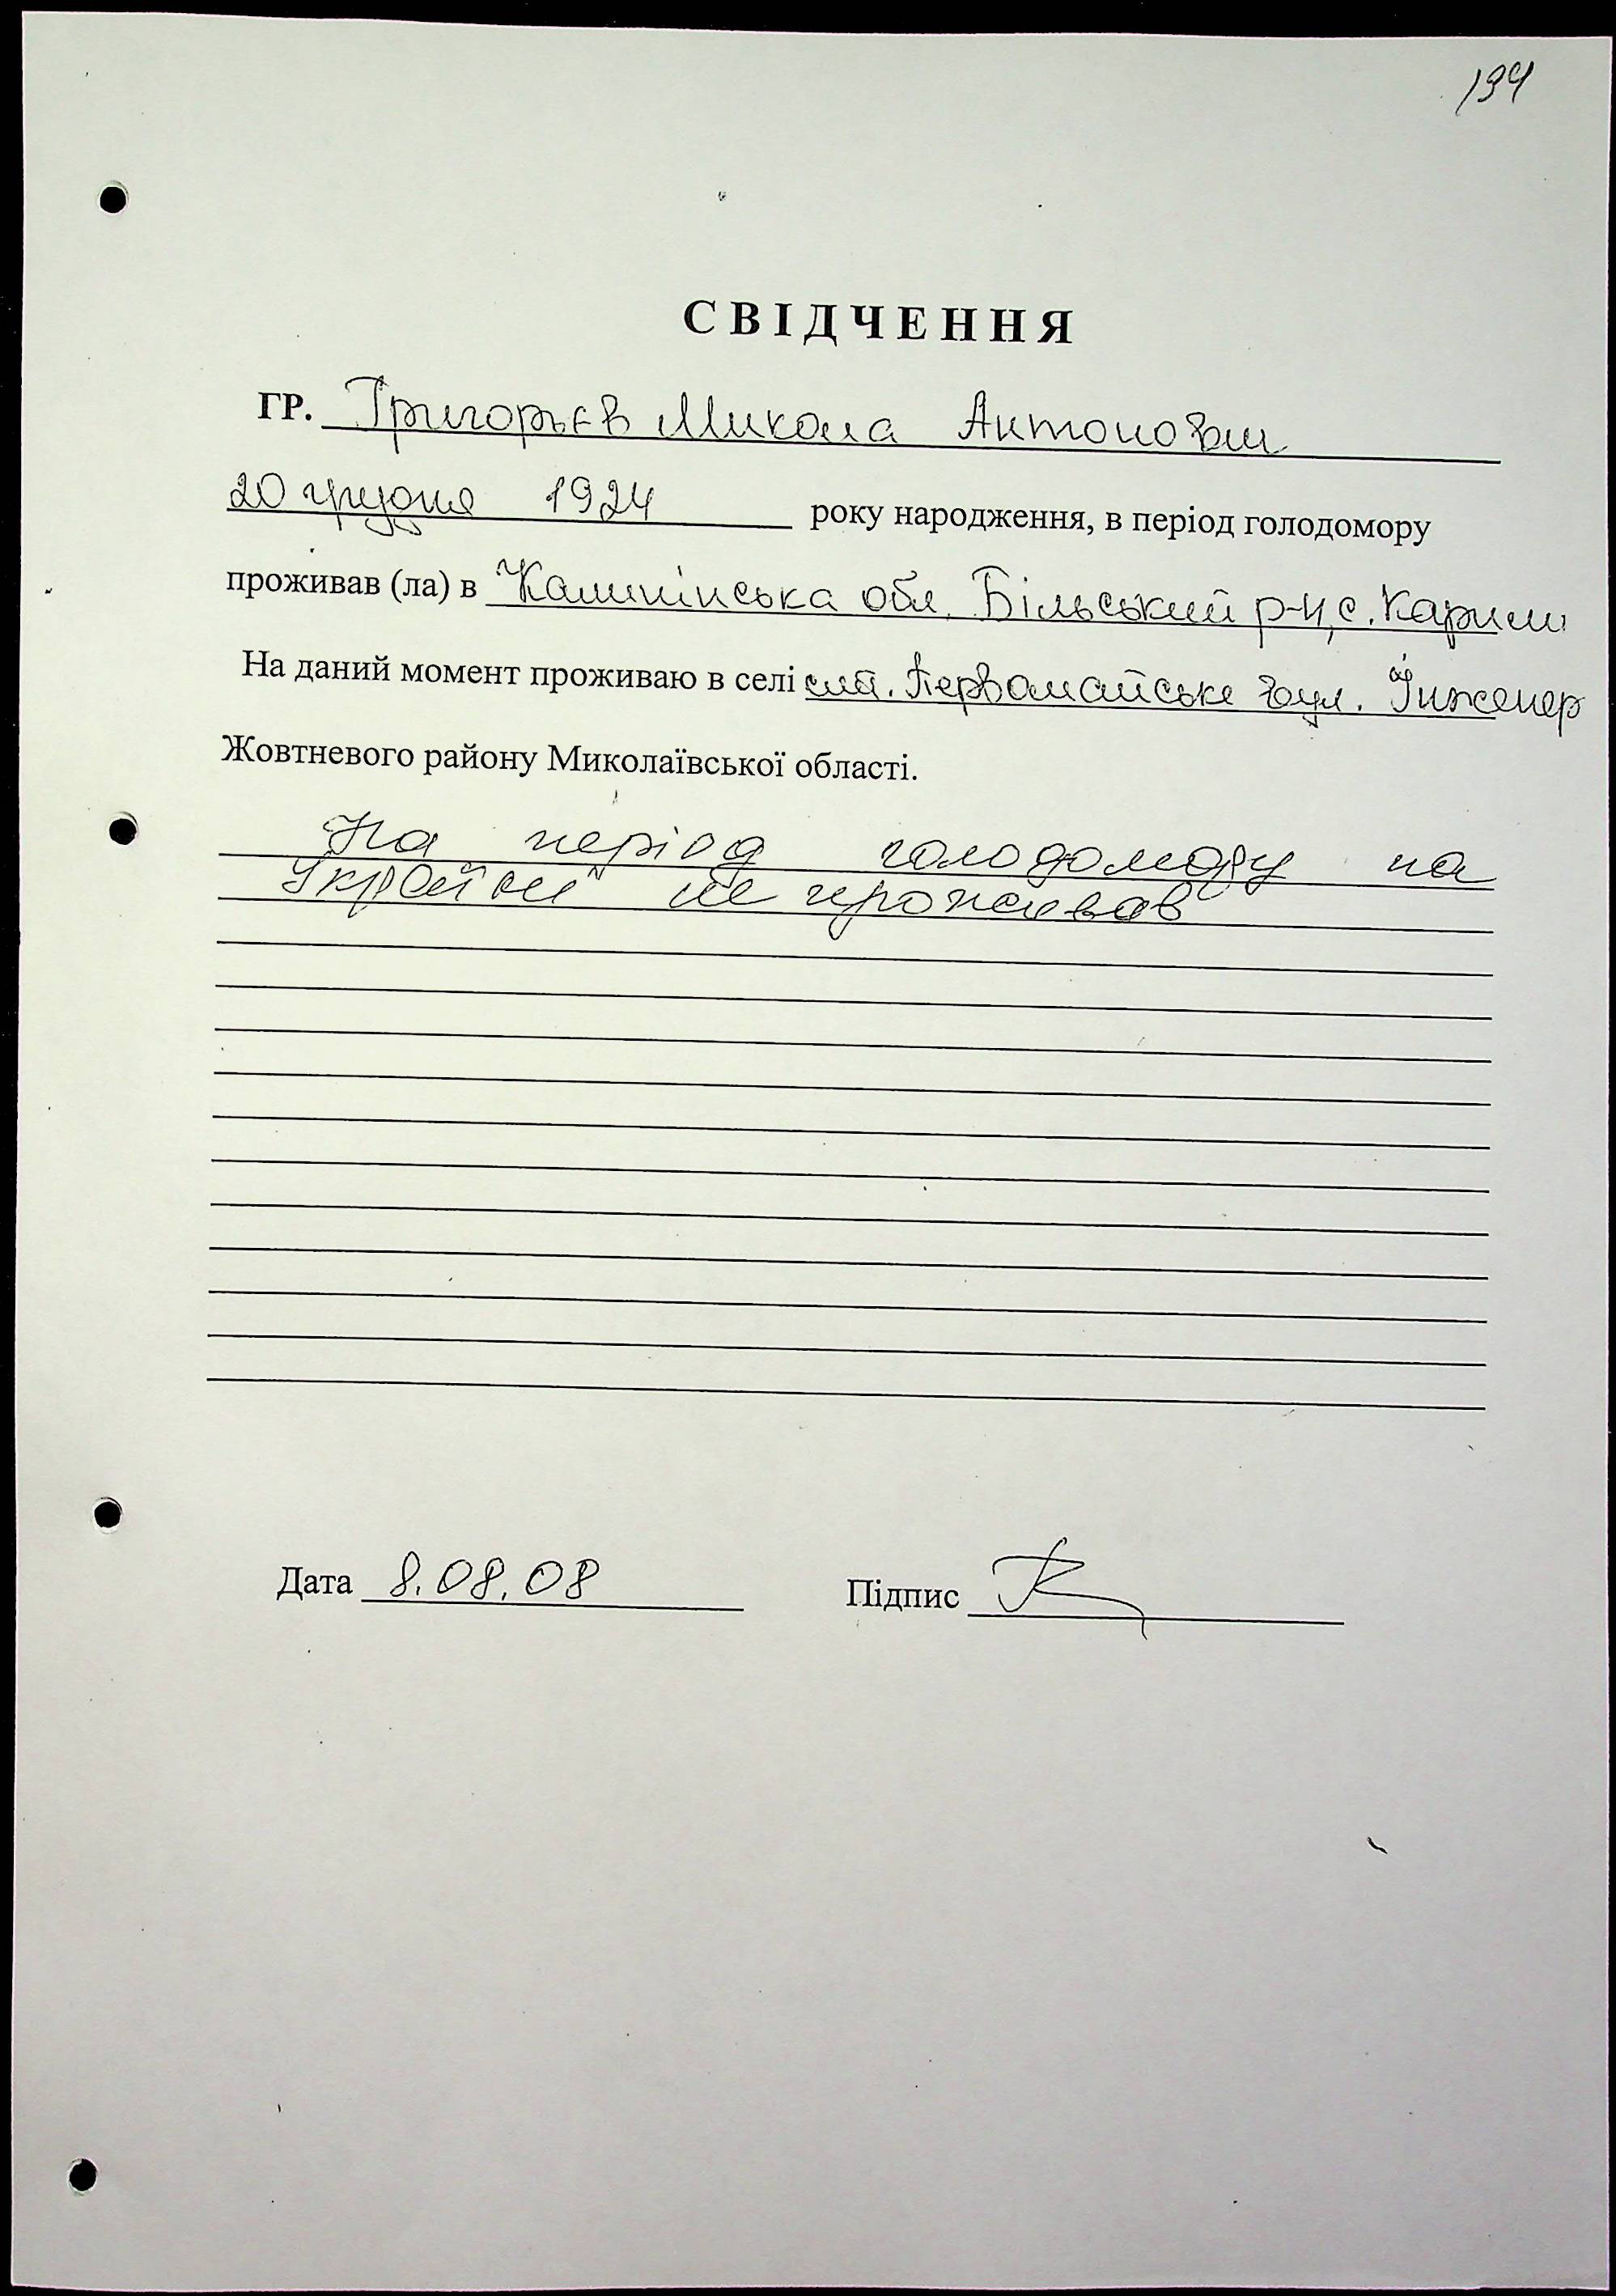 194
СВІДЧЕННЯ
ГР. Григорьєв Микола Антонович
20 грудня 1924 року народження, в період голодомору
проживав (ла) в Калинінська обл. Більський р-н, с.
На даний момент проживаю в селі смт. Первомайське вул. Інженер
Жовтневого району Миколаївської області.
На період голодомору на
Україні не проживав
Дата 8.08.08 Підпис